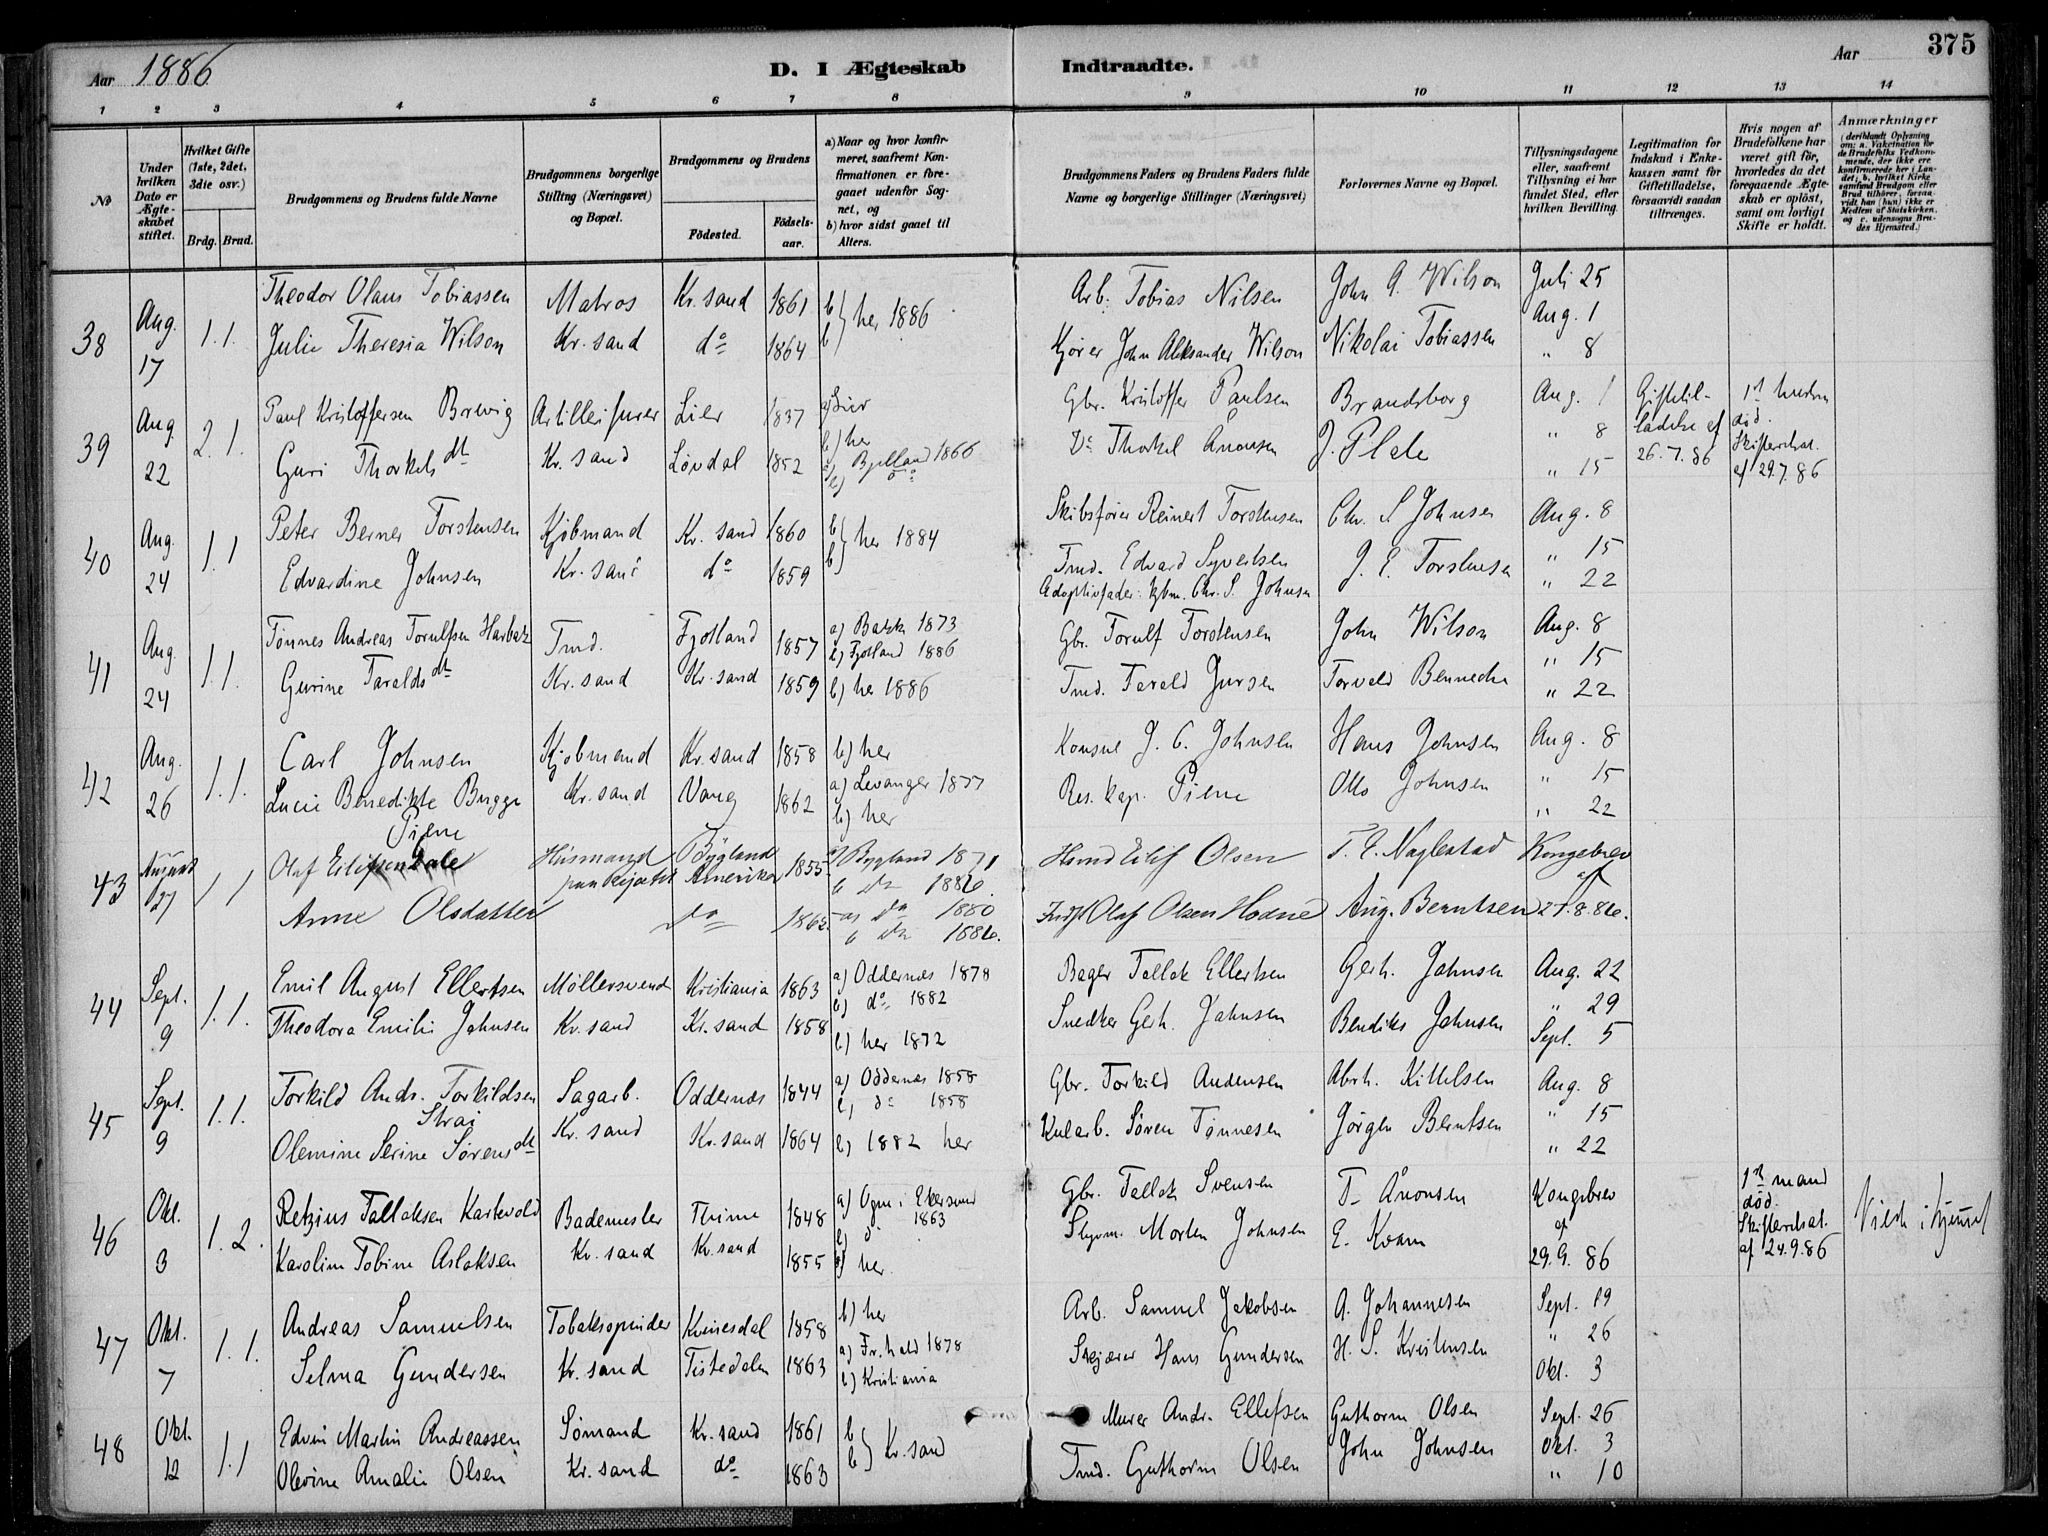 Aar 1886
D. I Ægteskab Indtraadte.
Aar 375
1 2 3 4 5 6 7 8 9 10 11 12 13 14
No
Under hvilken Dato er Ægteskabet stiftet.
Hvilket Gifte (1ste, 2det, 3die osv.)
Brdg. Brud.
Brudgommens og Brudens fulde Navne
Brudgommens borgerlige Stilling (Næringsvei) og Bopæl.
Brudgommens og Brudens
Födested. Födselsaar.
a) Naar og hvor konfirmeret, saafremt Konfirmationen er foregaaet udenfor Sognet, og
b) hvor sidst gaaet til Alters.
Brudgommens Faders og Brudens Faders fulde Navne og borgerlige Stillinger (Næringsvei)
Forlovernes Navne og Bopæl.
Tillysningsdagene eller, saafremt Tillysning ei har fundet Sted, efter hvilken Bevilling.
Legitimation for Indskud i Enkekassen samt for Giftetilladelse, forsaavidt saadan tiltrænges.
Hvis nogen af Brudefolkene har været gift för, hvorledes da det foregaaende Ægteskab er oplöst, samt om lovligt Skifte er holdt.
Anmærkninger
38 Aug. 17 1. 1.
Theodor Olaus Tobiassen Matros Kr.sand 1861 b) her 1886 Arb. Tobias Nilsen John A. Wilson Juli 25
Julie Theresia Wilson Kr. sand do 1864 b) Kjører John Aleksander Wilson Nikolai Tobiassen Aug. 1
" 8
39 Aug 22 2. 1.
Paul Kristoffersen Brevig Lier 1837 a) Lier b) her Gbr. Kristoffer Paulsen Brandsborg Aug. 1 Giftetilladelse af 26.7.86 død. af 29.7.86
Guri Thorkelsdt Kr. sand Løvdal 1852 a) Bjelland 1866 Do Thorkel Ånonsen J. Plate " 8
" 15
40 Aug. 24 1. 1
Peter Berner Torstensen Kjøbmand Kr. sand 1860 b) her 1884 Skibsfører Reinert Torstensen Chr. S Johnsen Aug. 8
Edvardine Johnsen Kr. sand do 1859 b) Tmd. Edvard Syvertsen J. E. Torstensen " 15
Adoptivfader: kjbm. Chr. S. Johnsen " 22
41 Aug. 24 1. 1.
Tønnes Andreas Torulfsen Tmd. Fjotland 1857 a) Bakke 1873 b) Fjotland 1886 Gbr. Torulf Torstensen John Wilson Aug. 8
Gurine Taraldsdt Kr. sand Kr. sand 1859 b) her 1886 Tmd. Tarald Torvald Benneche " 15
" 22
42 Aug. 26 1. 1.
Carl Johnsen Kjøbmand Kr. sand 1858 b) her Konsul J. C. Johnsen Hans Johnsen Aug. 8
Lucie Benedikte Bugge Piene Kr. sand Vang 1862 a) Levanger 1877 b) her Res. kap. Piene Otto Johnsen " 15
" 22
43 August 27 1 1
Olaf Eilifsen Dale Husmand Bygland Amerika 1855 a) Bygland 1871 b do 1886. Hmd Eilif Olsen T. E. Naglestad Kongebrev af
Anne Olsdatter do 1865 a) do 1880 b do 1886. Olaf Olsen Hodne Aug. Berntsen 27.8.86.
44 Sept. 9 1. 1.
Emil August Ellertsen Møllersvend Kristiania 1863 a) Oddernæs 1878 b) do 1882 Bager Tallak Ellertsen Gerh. Jahnsen Aug. 22
Theodora Emilie Jahnsen Kr. sand Kr. sand 1858 b) her 1872 Snedker Gerh. Jahnsen Bendiks Jahnsen " 29
Sept. 5
45 Sept. 9 1. 1.
Torkild Ands. Torkildsen Strai Sagarb. Oddernæs 1844 a) Oddernæs 1858 b) do 1858 Gbr. Torkild Andersen Abrh. Kittelsen Aug. 8
Olemine Serine Sørensdt Kr. sand Kr. sand 1864 b) 1882 her Kularb. Søren Tønnesen Jørgen Berntsen " 15
" 22
46 Okt. 3 1. 2.
Retzius Tallaksen Kartevold Bademester Thime 1848 a) Ogne i Ekersund 1863 b) do Gbr. Tallak Svensen T. Ånonsen Kongebrev af 1st mand død. af 24.9.86 Viede i hjemmet
Karoline Tobine Aslaksen Kr. sand Kr. sand 1855 b) her Morten Johnsen E. Kvam 29. 9. 86
47 Okt. 7 1. 1.
Andreas Samuelsen Tobaksspinder Kvinesdal 1858 b) her Arb. Samuel Jakobsen A. Johannesen Sept. 19
Selma Gundersen Kr. sand Tistedalen 1863 a) Fr.hald 1878 b) Kristiania Skjærer Hans Gundersen H. S. Kristensen " 26
Okt. 3
48 Okt. 12 1. 1
Edvin Martin Andreassen Sømand Kr. sand 1861 b) Kr. sand Murer Andr. Ellefsen Guthorm Olsen Sept. 26
Olevine Amalie Olsen Kr. sand do 1863 b) Tmd. Guthorm Olsen John Johnsen Okt. 3
" 10